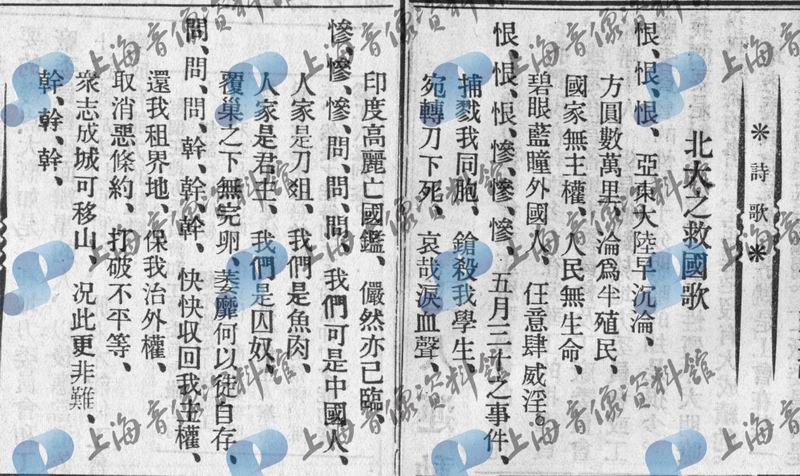 ※詩歌※
北大之救國歌
恨、恨、恨、亞東大陸早沉淪、
方圓數萬里、淪爲半殖民、
國家無主權、人民無生命、
碧眼藍瞳外國人、任意肆威淫。
恨、恨、恨、慘、慘、慘、五月三十之事件、
捕戮我同胞、鎗殺我學生、
宛轉刀下死、哀哉淚血聲、
印度高麗亡國鑑、儼然亦已臨、
慘、慘、慘、問、問、問、我們可是中國人、
人家是刀俎、我們是魚肉、
人家是君主、我們是囚奴、
覆巢之下無完卵、萎靡何以徒自存、
問、問、問、幹、幹、幹、快快収回我主權、
還我租界地、保我治外權、
取消惡條約、打破不平等、
衆志成城可移山、况此更非難、
幹、幹、幹、
上海音像資料館